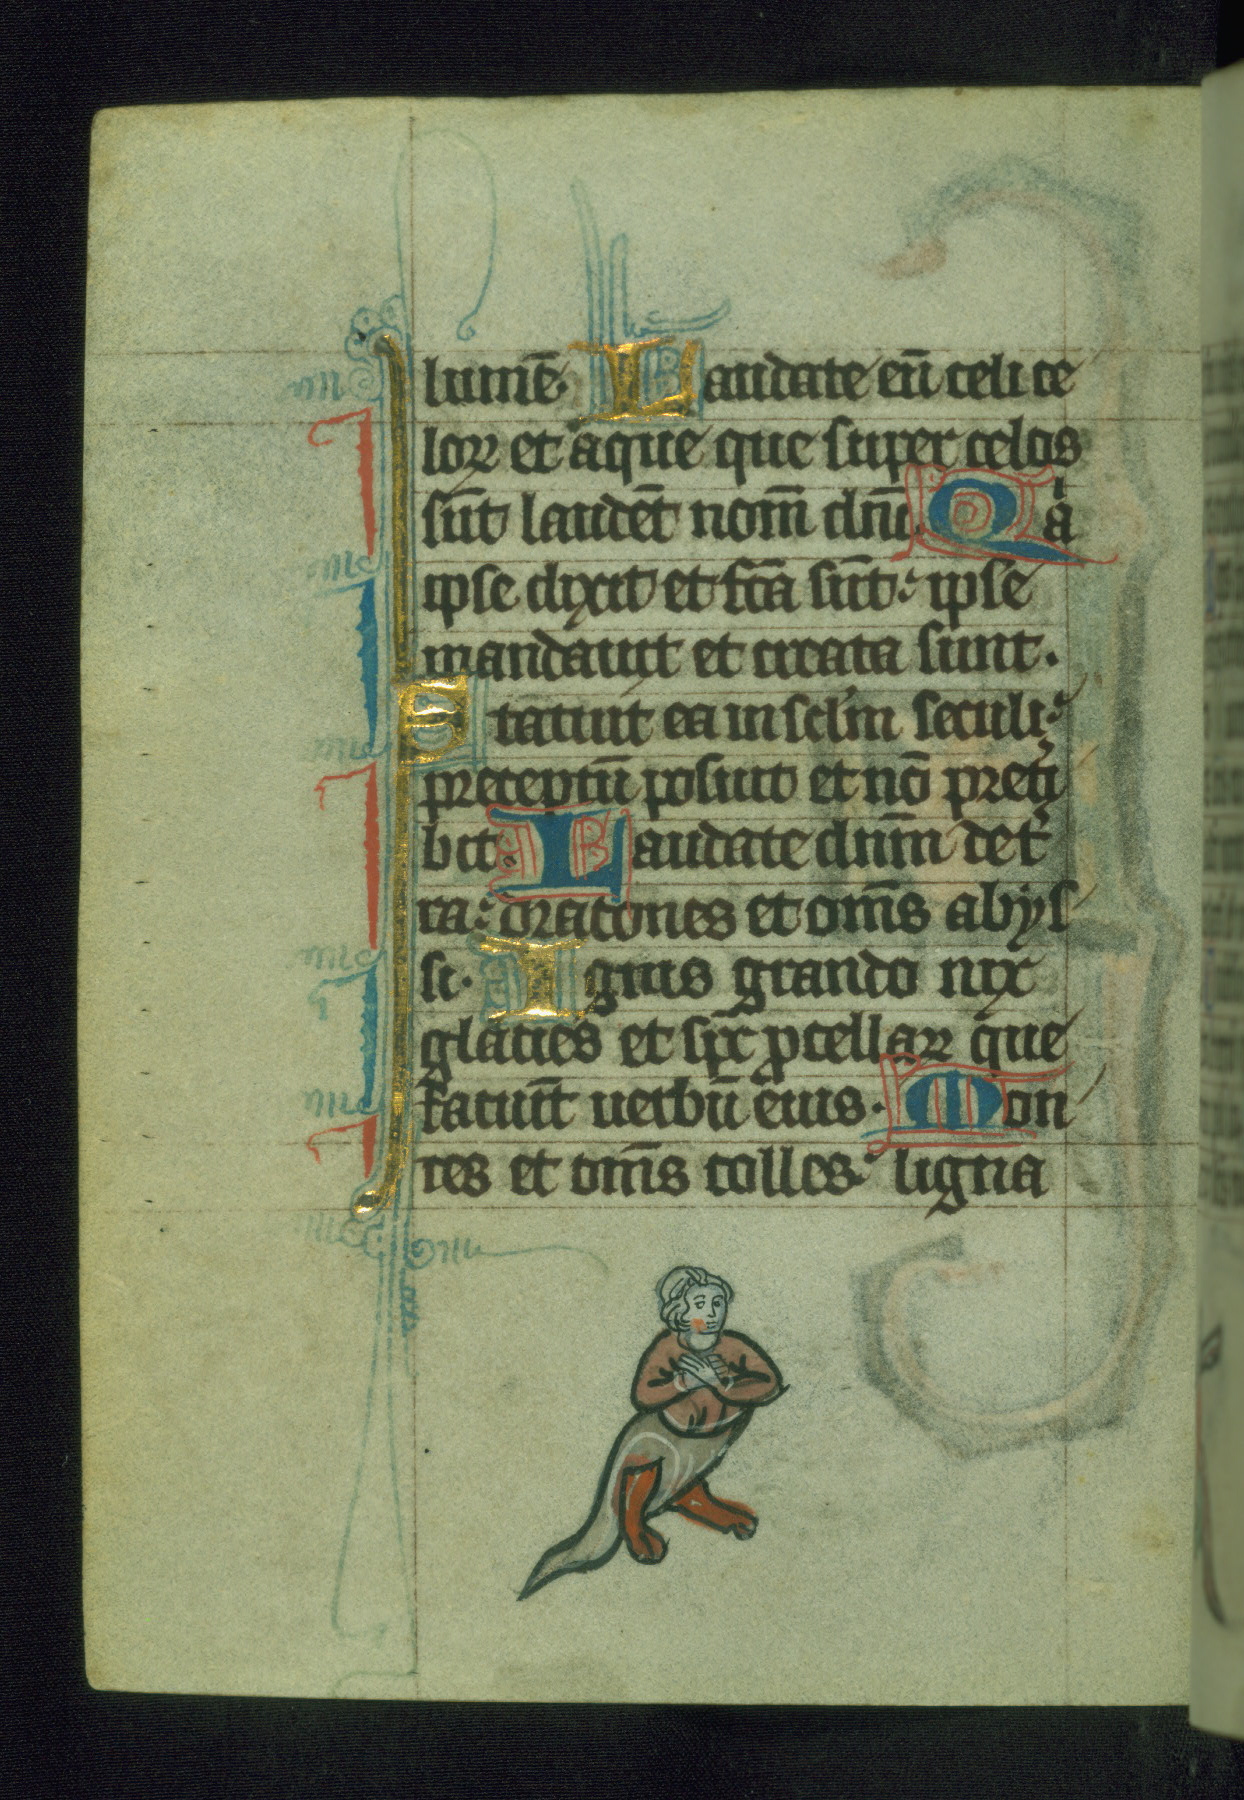 lumē. Laudate eū celi ce
loꝝ et aque que super celos
sūt laudēt nom̄ dn̄i. Qͥa
ipse dixit et fc̄a sūt: ipse
mandauit et creata sunt.
Statuit ea in sc̄l'm seculi:
preceptū posuit et nō preti
bit. Laudate dn̄m de t̄
ra: dracones et om̄s abys
si. Ignis grando nix
glacies et sp̄c ꝓcellaꝝ que
faciūt uerbū eius. Mon
tes et om̄s colles: ligna